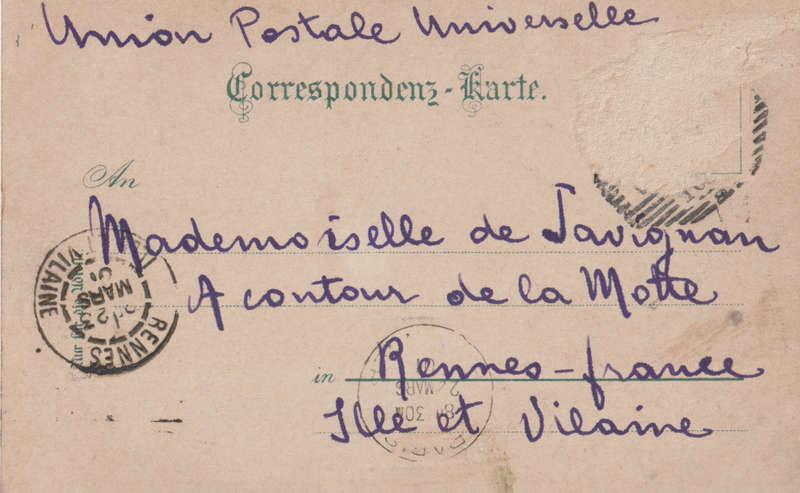 Union Postale Universelle
Correspondenz-Karte.
An
Mademoiselle de Javignan
A contour de la Motte
in Rennes-france
Ille et Vilaine
RENNES
VILAINE
MARS
MARS
8H 30M